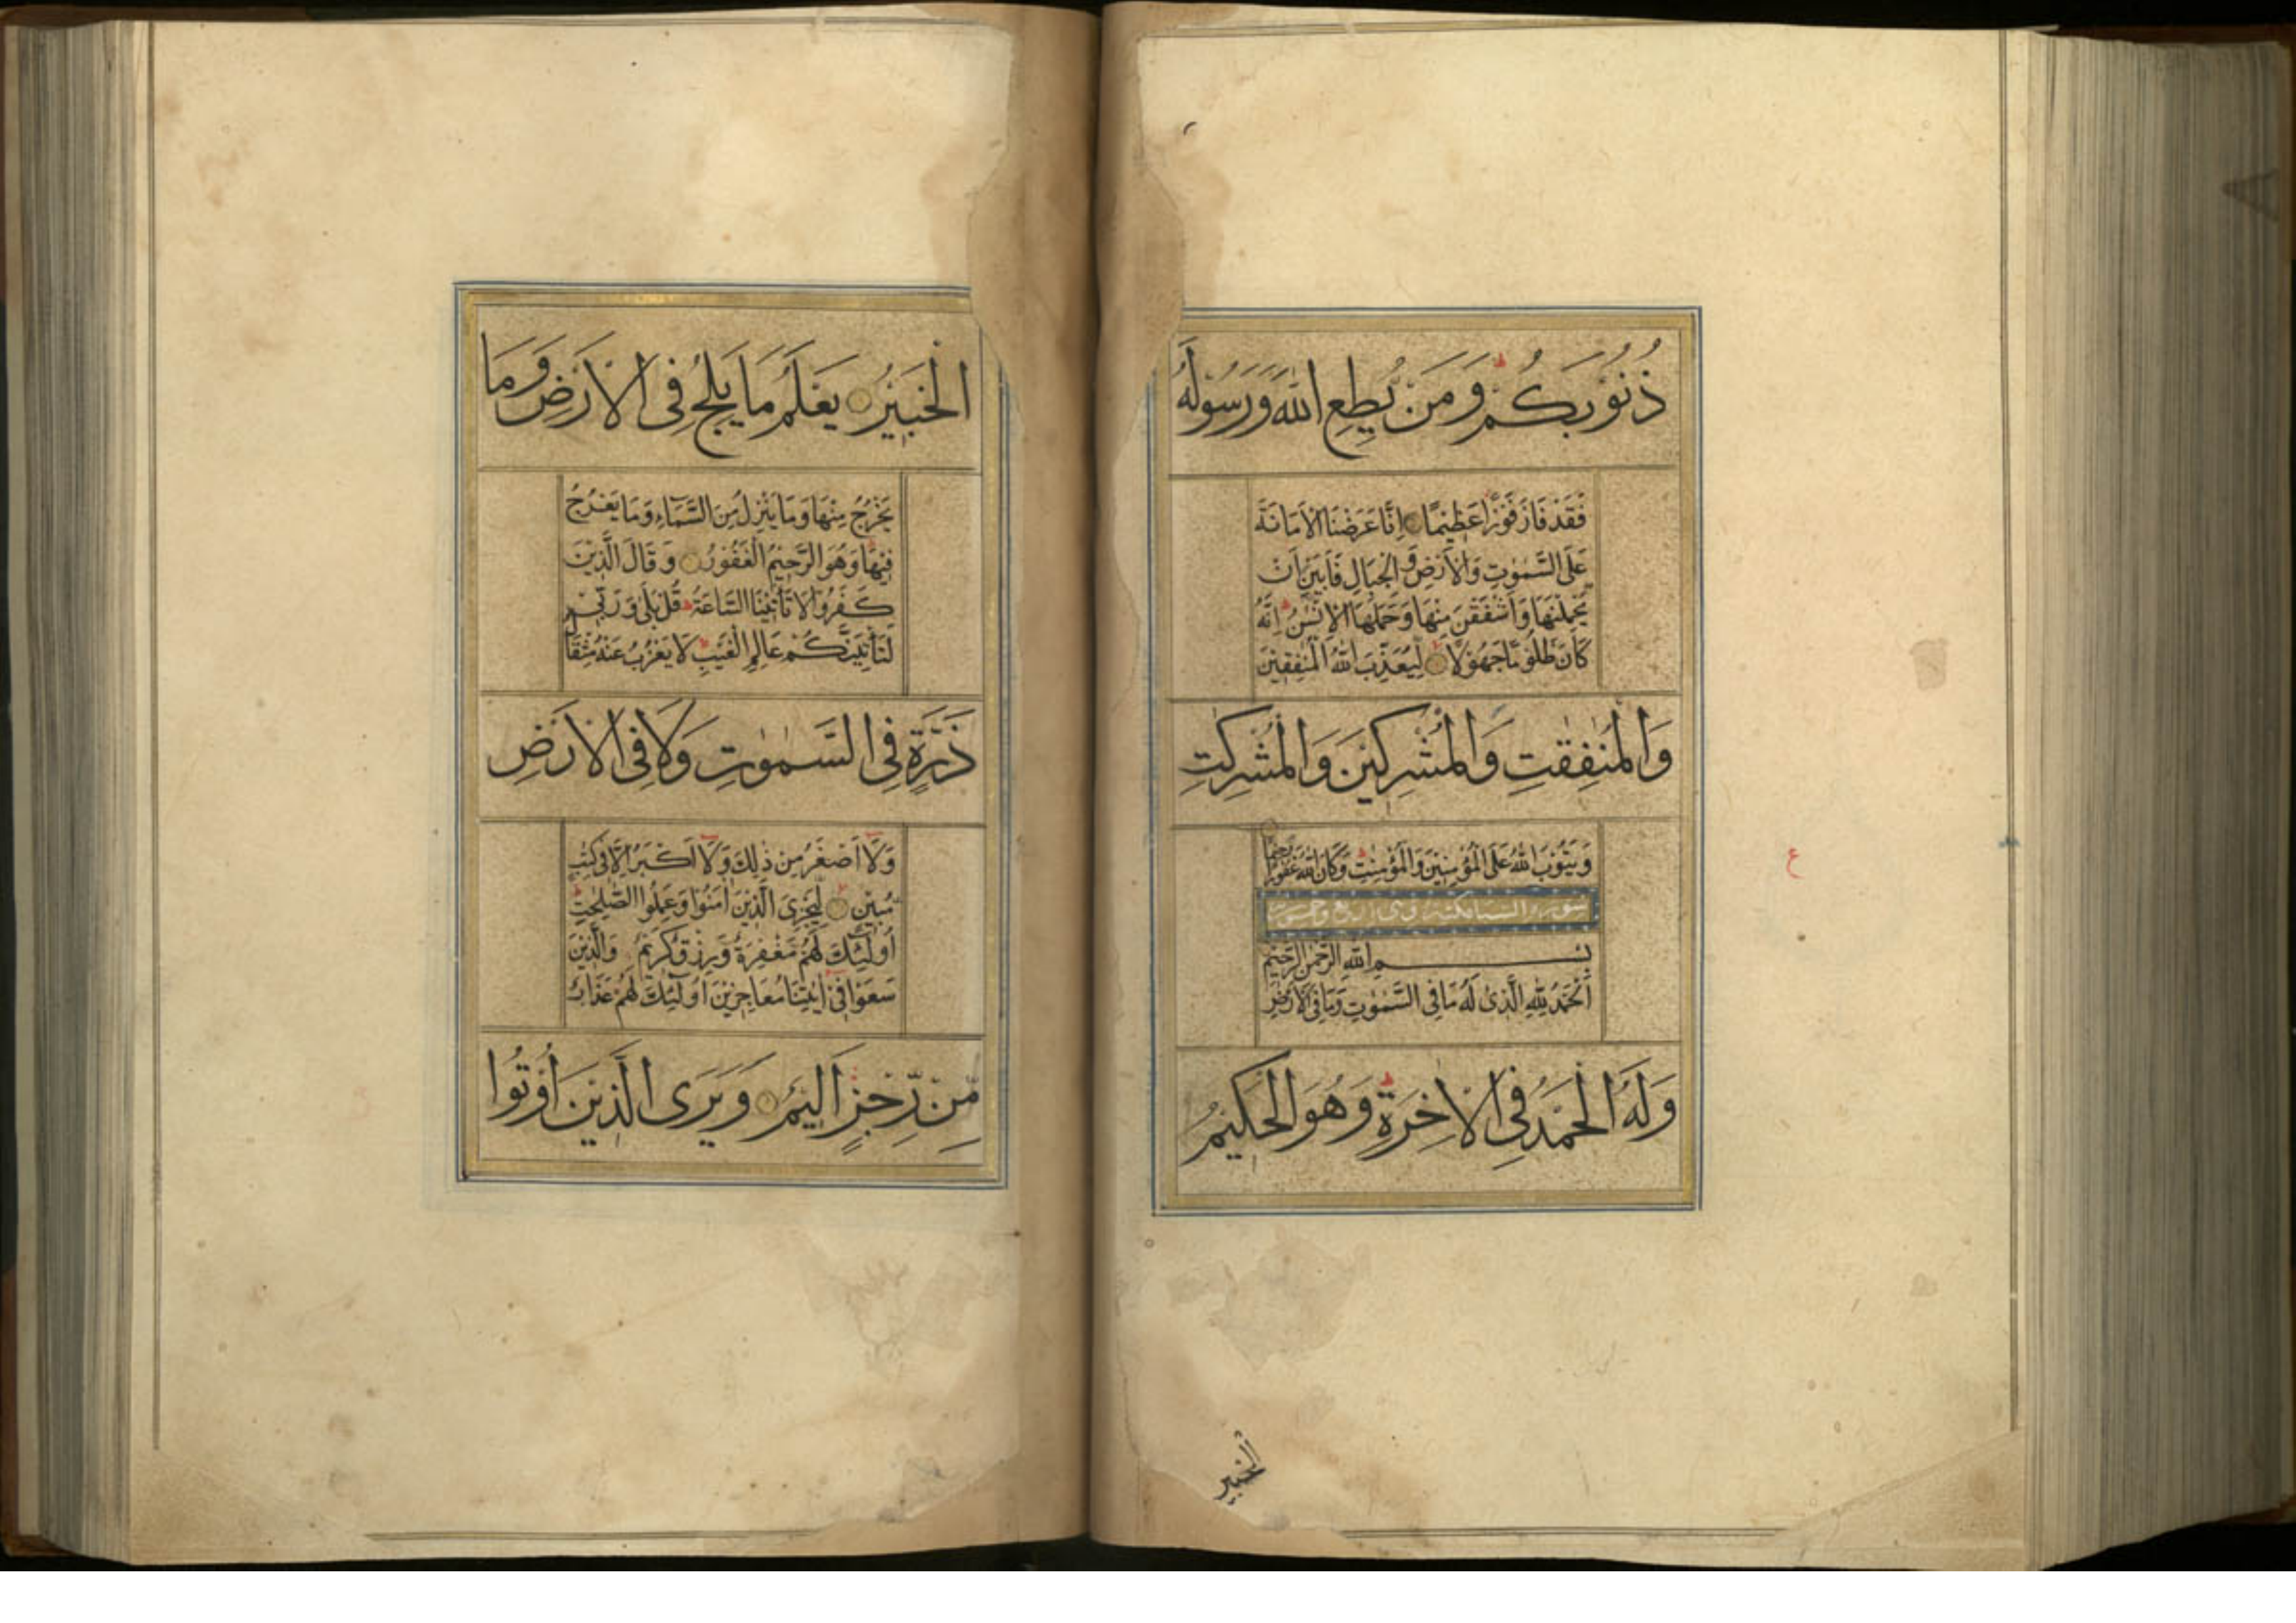 ذُنُوْبَكُمْ ط وَمَنْ يُطِعِ اللّٰهَ وَرَسُوْلَهٗ
فَقَدْ فَازَ فَوْزًا عَظِيْمًا اِنَّا عَرَضْنَا الْاَمَانَةَ
عَلَى السَّمٰوٰتِ وَالْاَرْضِ وَ الْجِبَالِ فَاَبَيْنَ اَنْ
يَّحْمِلْنَهَا وَاَشْفَقْنَ مِنْهَا وَحَمَلَهَا الْاِنْسٰنُ ط اِنَّهٗ
كَانَ ظَلُوْمًا جَهُوْلًا لِّيُعَذِّبَ اللّٰهُ الْمُنٰفِقِيْنَ
وَالْمُنٰفِقٰتِ وَالْمُشْرِكِيْنَ وَالْمُشْرِكٰتِ
وَيَتُوْبَ اللّٰهُ عَلَى الْمُؤْمِنِيْنَ وَالْمُؤْمِنٰتِ ط وَكَانَ اللّٰهُ غَفُوْرًا رَّحِيْمًا
سورة السبا مكية وهى اربع وخمسون
بِسْمِ اللّٰهِ الرَّحْمٰنِ الرَّحِيْمِ
اَلْحَمْدُ لِلّٰهِ الَّذِىْ لَهٗ مَا فِى السَّمٰوٰتِ وَمَا فِى الْاَرْضِ
وَلَهُ الْحَمْدُ فِى الْاٰخِرَةِ ط وَهُوَ الْحَكِيْمُ
ع
الْخَبِيْر
الْخَبِيْرُ يَعْلَمُ مَا يَلِجُ فِى الْاَرْضِ وَمَا
يَخْرُجُ مِنْهَا وَمَا يَنْزِلُ مِنَ السَّمَآءِ وَمَا يَعْرُجُ
فِيْهَا ط وَهُوَ الرَّحِيْمُ الْغَفُوْرُ وَقَالَ الَّذِيْنَ
كَفَرُوْا لَا تَأْتِيْنَا السَّاعَةُ ط قُلْ بَلٰى وَرَبِّىْ
لَتَأْتِيَنَّكُمْ عَالِمِ الْغَيْبِ لَا يَعْزُبُ عَنْهُ مِثْقَالُ
ذَرَّةٍ فِى السَّمٰوٰتِ وَلَا فِى الْاَرْضِ
وَلَآ اَصْغَرُ مِنْ ذٰلِكَ وَلَآ اَكْبَرُ اِلَّا فِىْ كِتٰبٍ
مُّبِيْنٍ لِّيَجْزِىَ الَّذِيْنَ اٰمَنُوْا وَعَمِلُوا الصّٰلِحٰتِ ط
اُولٰٓئِكَ لَهُمْ مَّغْفِرَةٌ وَّرِزْقٌ كَرِيْمٌ وَالَّذِيْنَ
سَعَوْا فِىْٓ اٰيٰتِنَا مُعَاجِزِيْنَ اُولٰٓئِكَ لَهُمْ عَذَابٌ
مِّنْ رِّجْزٍ اَلِيْمٌ وَيَرَى الَّذِيْنَ اُوْتُوا